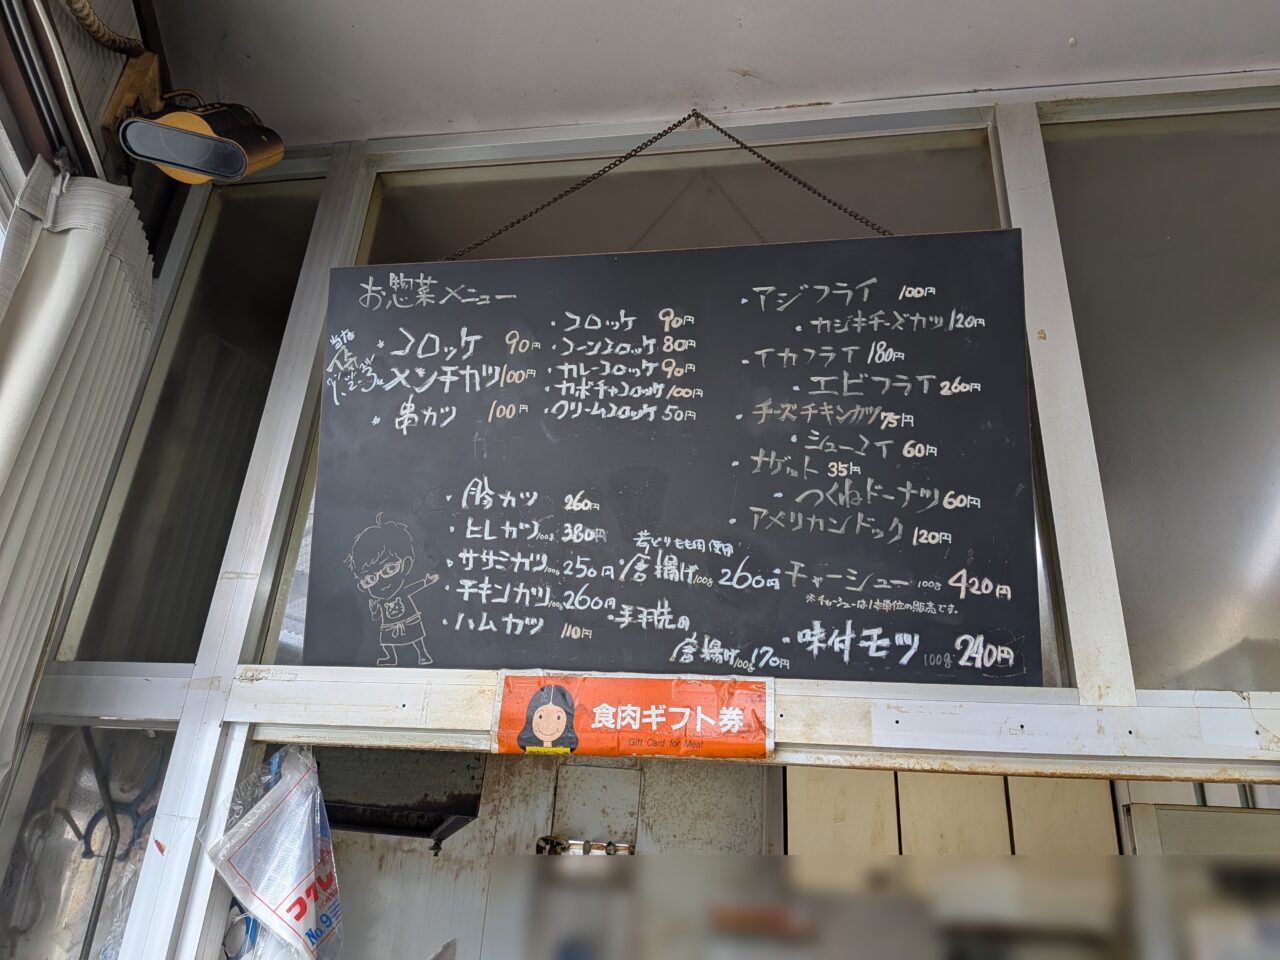 お惣菜メニュー
当店人気
1・2・3
・コロッケ 90円
・メンチカツ 100円
・串カツ 100円
・コロッケ 90円
・コーンコロッケ 80円
・カレーコロッケ 90円
・カボチャコロッケ 100円
・クリームコロッケ 50円
・豚カツ 260円
・ヒレカツ 100g 380円
・ササミカツ 100g 250円
・チキンカツ 100g 260円
・ハムカツ 110円
若どりもも肉使用
・唐揚げ 100g 260円
・手羽先の
唐揚げ 100g 170円
・アジフライ 100円
・カジキチーズカツ 120円
・イカフライ 180円
・エビフライ 260円
・チーズチキンカツ 75円
・シューマイ 60円
・ナゲット 35円
・つくねドーナツ 60円
・アメリカンドック 120円
・チャーシュー 100g 420円
※チャーシューは1本単位の販売です。
・味付モツ 100g 240円
食肉ギフト券
Gift Card for Meat
No.9